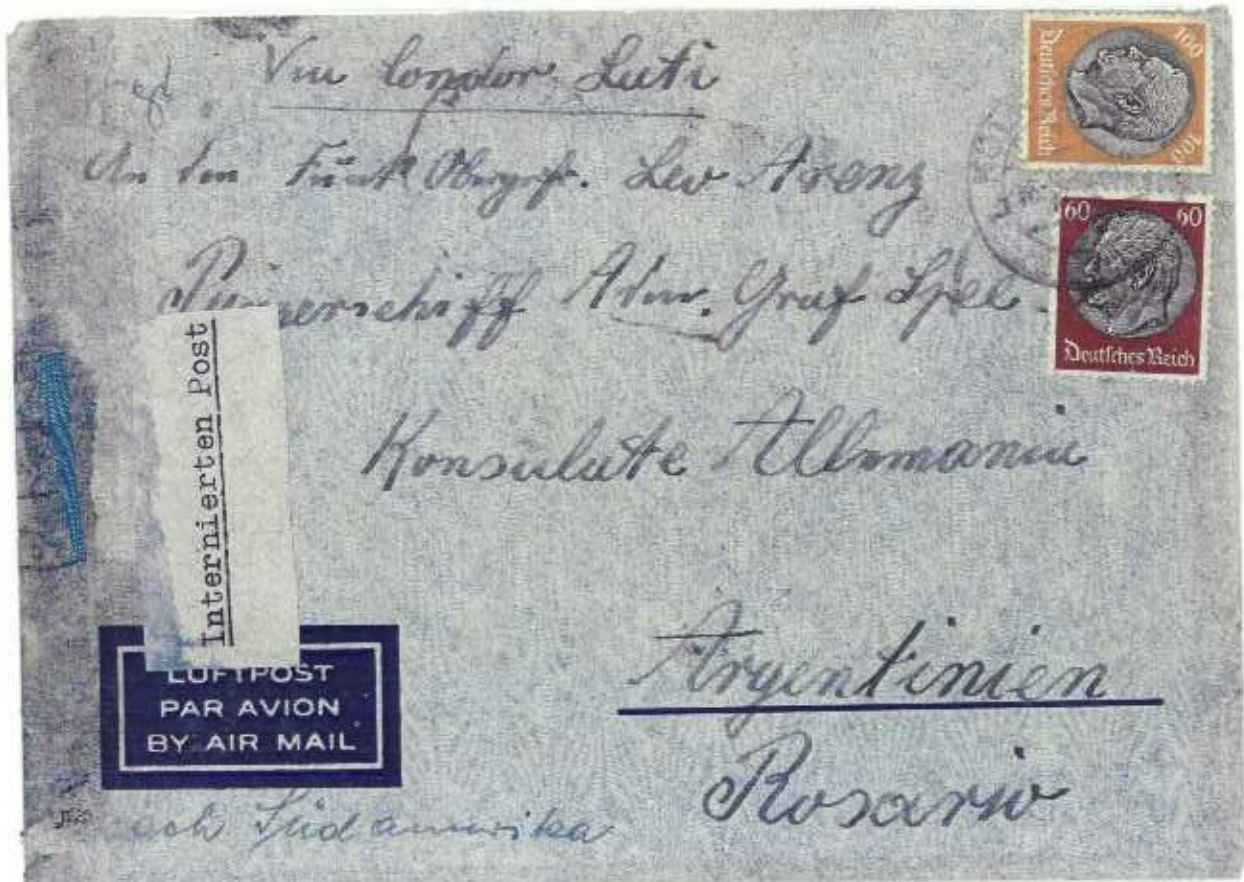 Via Condor Lati
An den Funk Obergefr. Leo Arenz
Panzerschiff Adm. Graf Spee
Konsulate Allemania
Argentinien
Rosario
Internierten Post
LUFTPOST
PAR AVION
BY AIR MAIL
nach Südamerika
100 100
Deutsches Reich
60 60
Deutsches Reich